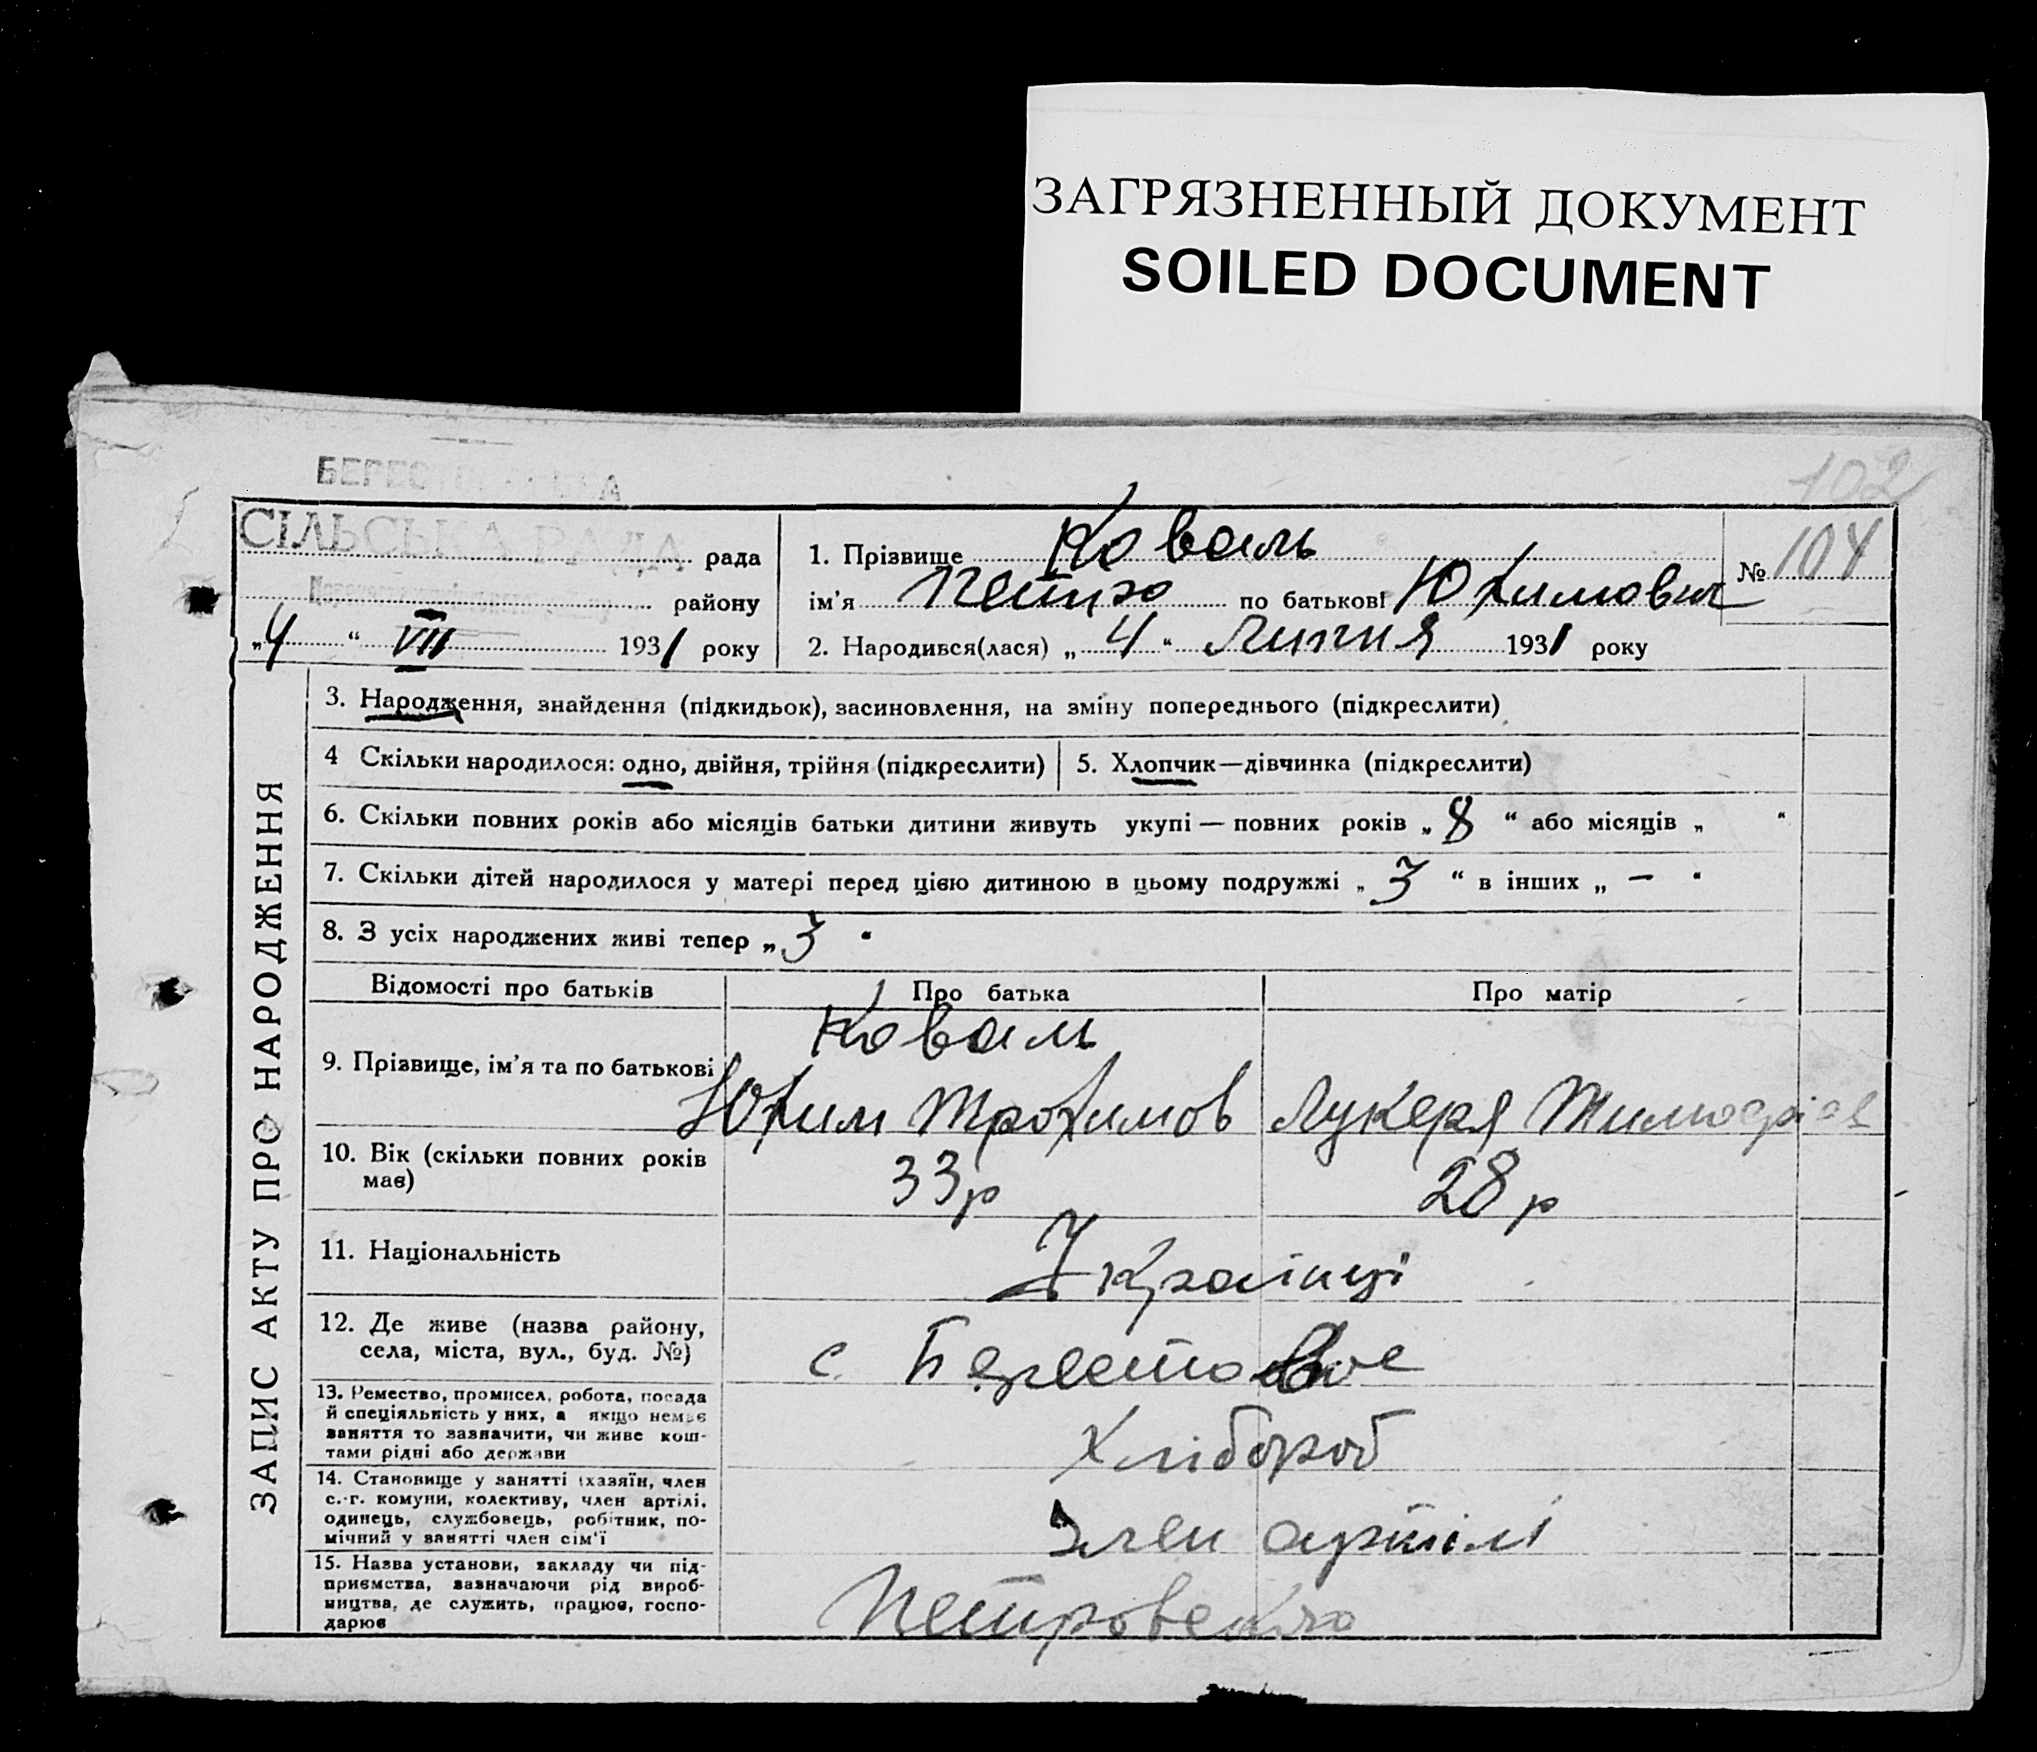 ЗАГРЯЗНЕННЫЙ ДОКУМЕНТ
SOILED DOCUMENT
102
СІЛЬСЬКА РАДА
рада
району
„4“ VII 1931 року
1. Прізвище Коваль
ім’я Петро по батькові Юхимович
2. Народився(лася) „4“ Липня 1931 року
№ 104
ЗАПИС АКТУ ПРО НАРОДЖЕННЯ
3. Народження, знайдення (підкидьок), засиновлення, на зміну попереднього (підкреслити)
4 Скільки народилося: одно, двійня, трійня (підкреслити)
5. Хлопчик—дівчинка (підкреслити)
6. Скільки повних років або місяців батьки дитини живуть укупі — повних років „8“ або місяців „ “
7. Скільки дітей народилося у матері перед цією дитиною в цьому подружжі „3“ в інших „—“
8. З усіх народжених живі тепер „3“
Відомості про батьків
Про батька
Про матір
9. Прізвище, ім’я та по батькові
Коваль
Юхим Трохимов
Лукеря Тимофієв
10. Вік (скільки повних років
має)
33 р
28 р
11. Національність
Українці
12. Де живе (назва району,
села, міста, вул., буд. №)
с. Берестове
13. Ремество, промисел, робота, посада
й спеціяльність у них, а якщо немає
заняття то зазначити, чи живе кош-
тами рідні або держави
Хлібороб
14. Становище у занятті (хазяїн, член
с.-г. комуни, колективу, член артілі,
одинець, службовець, робітник, по-
мічний у занятті член сім’ї
Член артілі
15. Назва установи, закладу чи під-
приємства, зазначаючи рід вироб-
ництва, де служить, працює, госпо-
дарює
Петровського